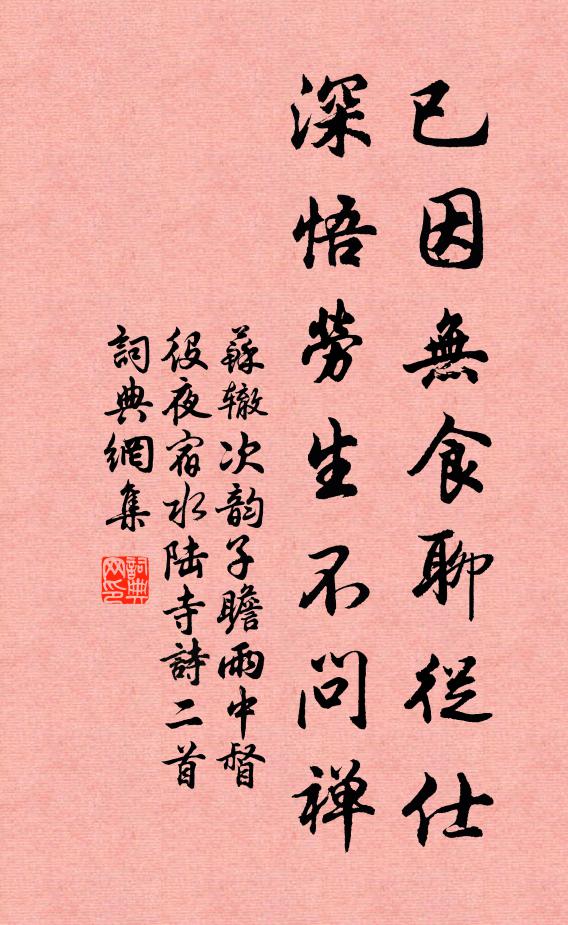 已因無食聊從仕
深悟勞生不問禅
蘇辙次韵子瞻雨中督
役夜宿水陆寺詩二首
詞典網集
詞典
网印